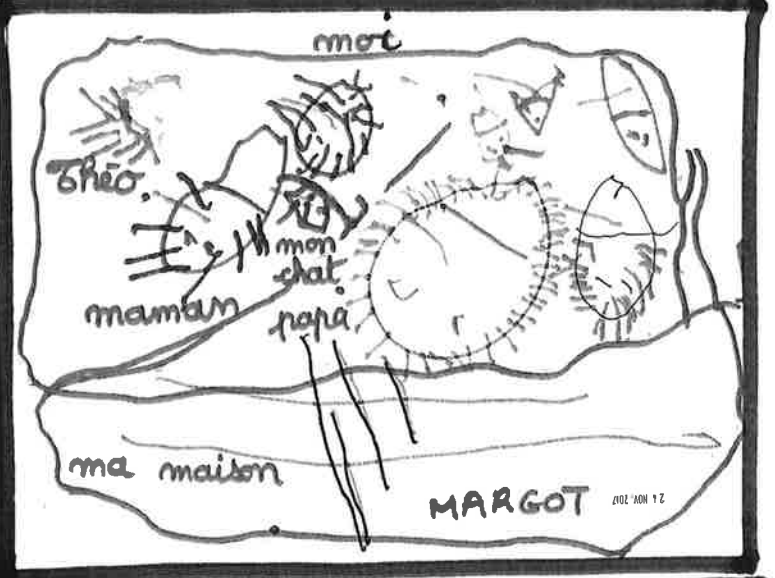 moi
Théo
mon
chat
maman
papa
ma maison
MARGOT
24 NOV. 2017